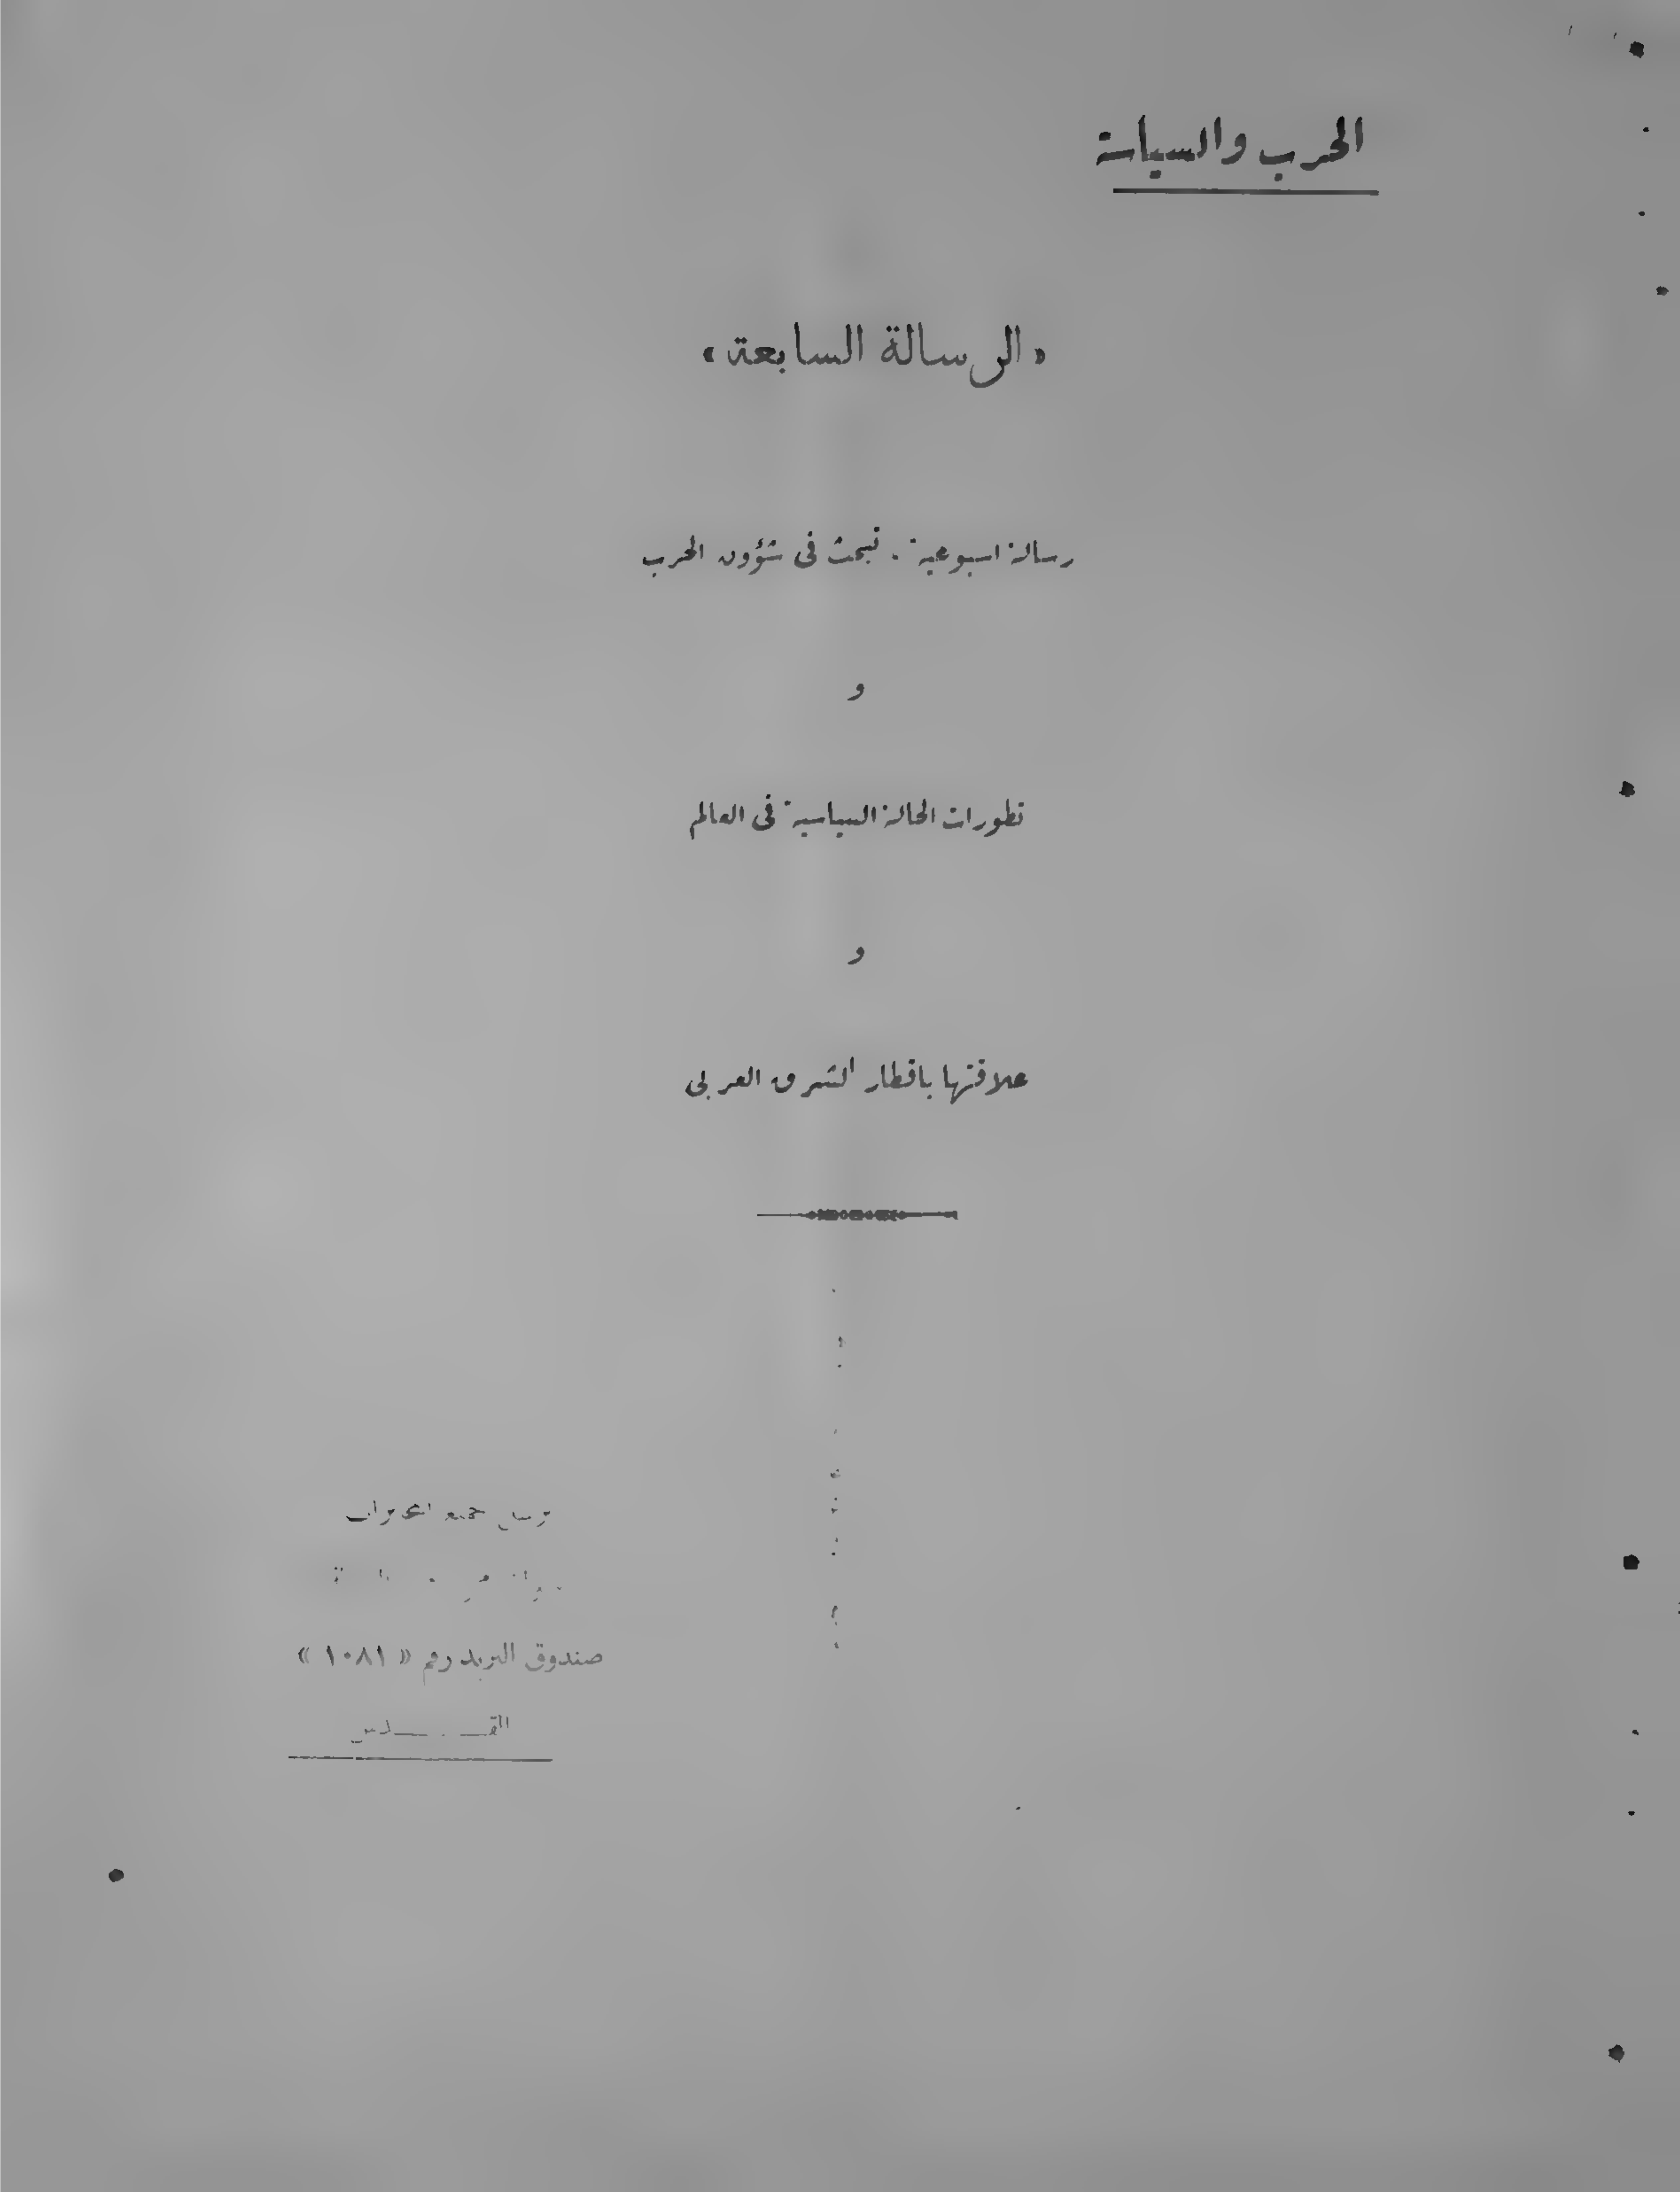 الحرب والسياسة
«الرسالة السابعة»
رسالة اسبوعية . تبحث في شؤون الحرب
و
تطورات الحالة السياسية في العالم
و
علاقتها باقطار الشرق العربي
ترسل جميع
صندوق البريد رقم «١٠٨١»
القـــدس